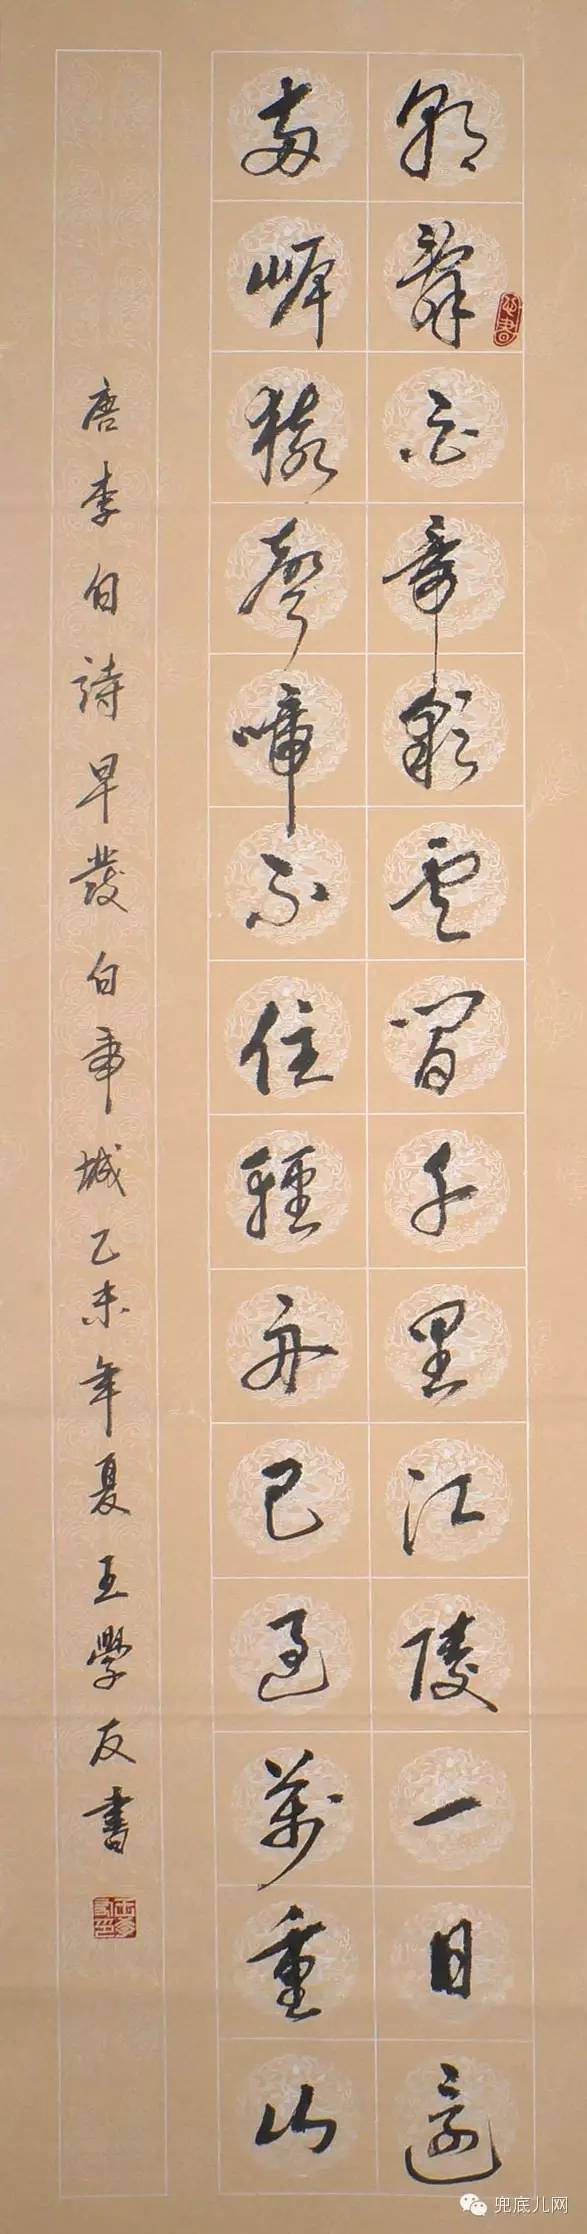 朝辭白帝彩雲間千里江陵一日還
兩岸猿聲啼不住輕舟已過萬重山
唐李白詩早發白帝城乙未年夏王學友書
兜底儿网